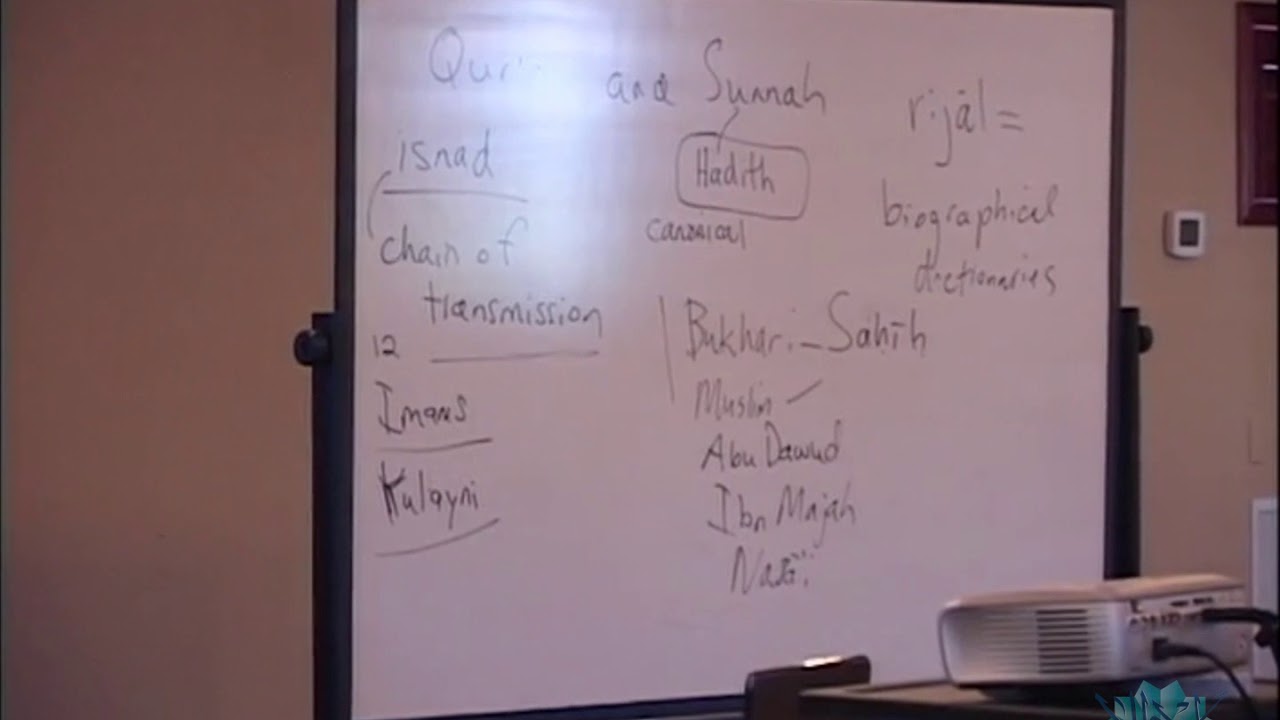 Qur' and Sunnah
isnad
chain of
transmission
12
Imams
Kulayni
Hadith
canonical
Bukhari - Sahīh
Muslim
Abu Dawud
Ibn Majah
rijāl =
biographical
dictionaries